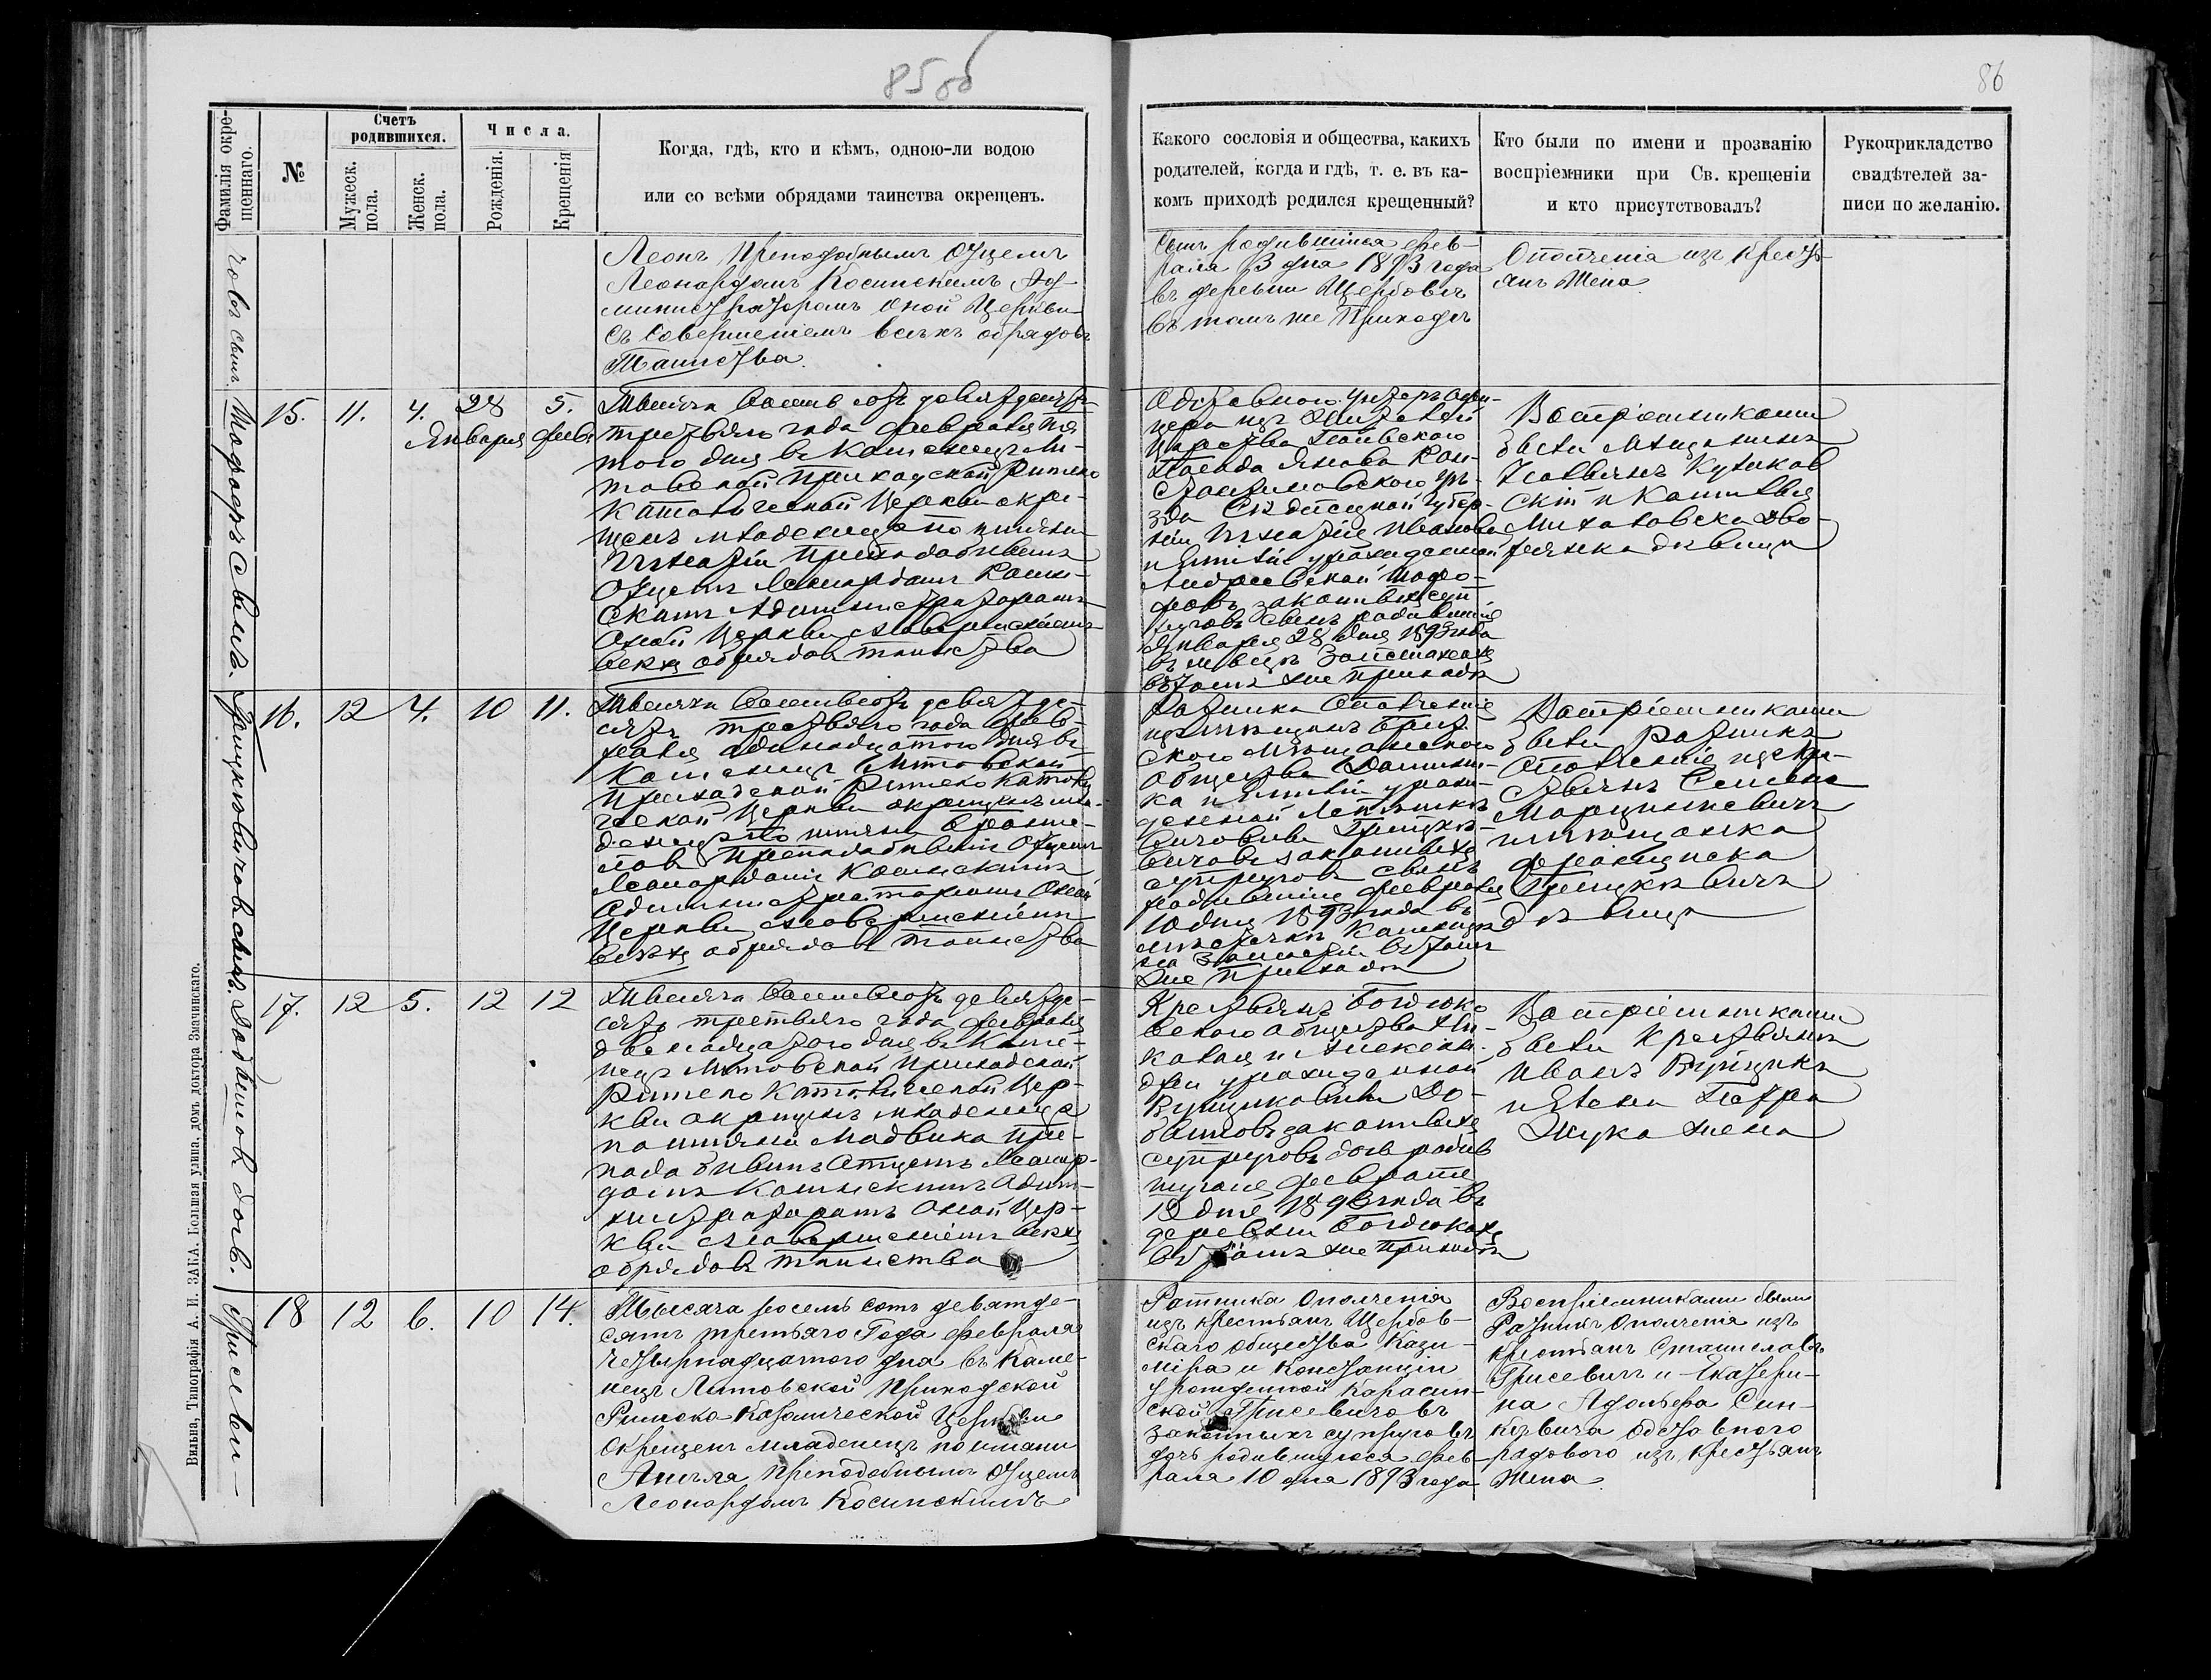 85 об
86
Фамилія окре-
щеннаго.
№
Счетъ
родившихся.
Мужеск.
пола.
Женск.
пола.
Числа.
Рожденія.
Крещенія
Когда, гдѣ, кто и кѣмъ, одною-ли водою
или со всѣми обрядами таинства окрещенъ.
Какого сословія и общества, какихъ
родителей, когда и гдѣ, т. е. въ ка-
комъ приходѣ родился крещенный?
Кто были по имени и прозванію
воспріемники при Св. крещеніи
и кто присутствовалъ?
Рукоприкладство
свидѣтелей за-
писи по желанію.
човъ сынъ
Леонъ Преподобнымъ Отцемъ
Леонардомъ Косинскимъ Ад-
министраторомъ оной Церкви
съ совершеніемъ всѣхъ обрядовъ
Таинства.
Сынъ родившійся фев-
раля 3 дня 1893 года
въ деревни Щербовѣ
въ томъ же Приходѣ
Ополченія изъ Кресть-
янъ Жена
15. 11. 4. 28 5.
Января февр
Тысяча восемь сотъ девятдесятъ
третьяго года февраля пя
того дня въ Каменецъ Ли-
товской Приходской Римско
Католической Церкви окре-
щенъ младенецъ по имени
Игнатій Преподобнымъ
Отцемъ Леонардомъ Косин-
скимъ Администраторомъ
оной Церкви съ совершеніемъ
всѣхъ обрядовъ таинства
Отставного унтеръ офи-
цера изъ
Царства Польскаго
Посада Янова Кон-
стантиновскаго уѣ-
зда Сѣдлецкой Губер-
ніи Игнатія Иванова
и Эмиліи урожденной
Андреевской
законныхъ суп-
руговъ сынъ родившійся
Января 28 дня 1893 года
въ
въ томъ же приходѣ
Воспріемниками
были Мѣщанинъ
и Камилія
Михаловска Дво-
рянка дѣвица
16. 12 4. 10 11.
Тысяча восемь сотъ девятде-
сятъ третьяго года фев-
раля одинадцатого дня въ
Каменецъ Литовской
Приходской Римско Католи-
ческой Церкви окрещенъ мла-
денецъ по имени Брони-
славъ Преподобнымъ Отцемъ
Леонардомъ Косинскимъ
Администраторомъ оной
Церкви съ совершеніемъ
всѣхъ обрядовъ таинства
Ратника Ополченія
изъ мѣщанъ Брест-
ского Мѣщанского
общества Домини-
ка и Эмиліи урож-
денной
Грицке-
вичовъ законныхъ
супруговъ сынъ
родившійся февраля
10 дня 1893 года въ
мѣстечкѣ Каменцѣ
на въ томъ
же Приходѣ
Воспріемниками
были Ратникъ
Ополченія изъ кре-
стьянъ Семенъ
Марцинкевичъ
и мѣщанка
Францишка
Грицкевичъ
дѣвица
17. 12 5. 12 12
Тысяча восемь сотъ девятде-
сятъ третьяго года февраля
двѣнадцатого дня въ Каме-
нецъ Литовской Приходской
Римско Католической Цер-
кви окрещенъ младенецъ
по имени Ядвига Пре-
подобнымъ Отцемъ Леонар-
домъ Косинскимъ Адми-
нистраторомъ оной Цер-
кви съ совершеніемъ всѣхъ
обрядовъ таинства
Крестьянъ
ского общества Ни-
колая и Алексан-
дры урожденной
законныхъ
супруговъ дочь родив-
шуюся февраля
12 дня 1893 года въ
деревни
въ томъ же приходѣ
Воспріемниками
были Крестьянинъ
Иванъ
и Елена Петра
Жука жена
18 12 6. 10 14.
Тысяча восемь сотъ девятде-
сятъ третьяго Года февраля
четырнадцатого дня въ Каме-
нецъ Литовской Приходской
Римско Католической Церкви
окрещенъ младенецъ по имени
Анеля Преподобнымъ Отцемъ
Леонардомъ Косинскимъ
Ратника Ополченія
изъ крестьянъ Щербов-
скаго общества Кази-
міра и Констанціи
урожденной Карасин-
ской Грисевичовъ
законныхъ супруговъ
дочь родившуюся фев-
раля 10 дня 1893 года
Воспріемниками были
Ратникъ Ополченія изъ
крестьянъ Станиславъ
Грисевичъ и Екатери-
на Адольфа Син-
кевича Отставного
рядового изъ крестьянъ
Жена.
Грисеви-
Вильна, Типографія А. И. ЗАКА. Большая улица, домъ доктора Змачинскаго.